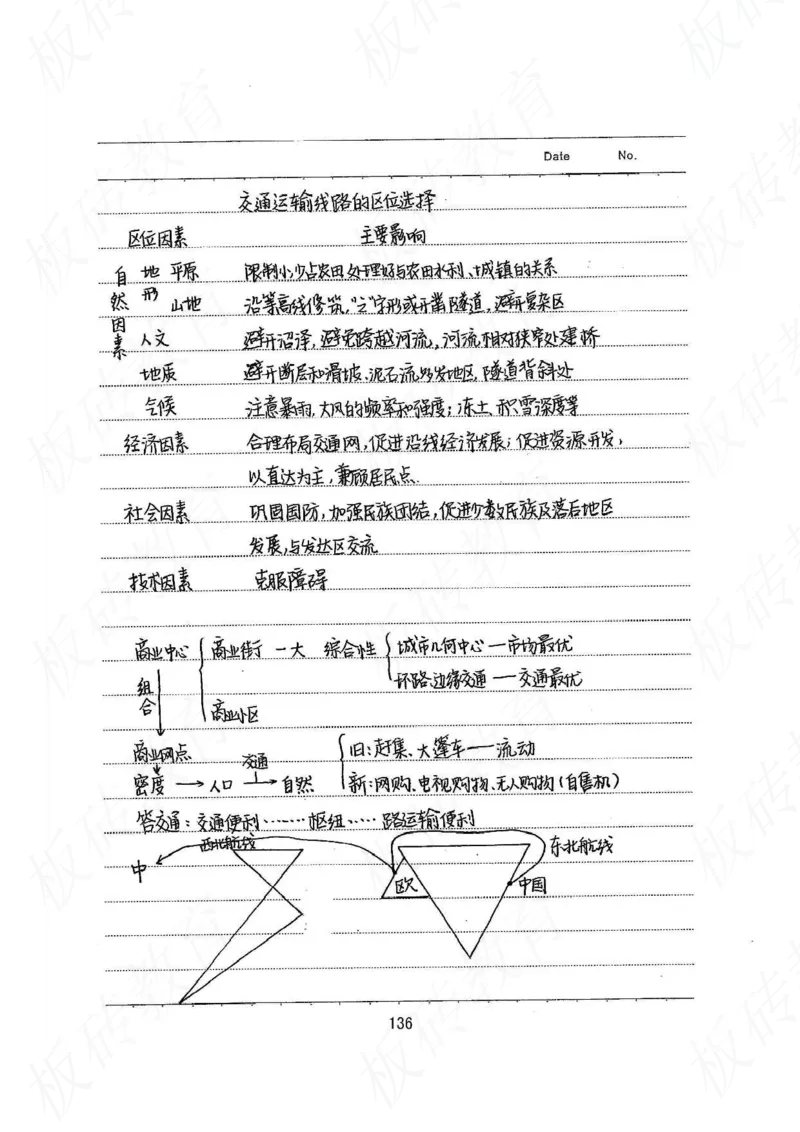 Date No.
交通运输线路的区位选择
区位因素 主要影响
自然因素 地形 平原 限制小,少占农田,处理好与农田水利、城镇的关系
山地 沿等高线修筑,“之”字形或开凿隧道,避开复杂区
人文 避开沼泽,避免跨越河流,河流相对狭窄处建桥
地质 避开断层和滑坡、泥石流多发地区,隧道背斜处
气候 注意暴雨,大风的频率和强度;冻土、积雪深度等
经济因素 合理布局交通网,促进沿线经济发展;促进资源开发,
以直达为主,兼顾居民点.
社会因素 巩固国防,加强民族团结,促进少数民族及落后地区
发展,与发达区交流
技术因素 克服障碍
商业中心 商业街 一大 综合性 城市几何中心—市场最优
环路边缘交通—交通最优
组合
商业小区
商业网点 旧:赶集、大篷车——流动
密度→人口 交通→自然 新:网购、电视购物、无人购物(自售机)
答交通:交通便利、……枢纽、…… 路运输便利
西北航线 东北航线
中 欧 中国
136
板砖教育